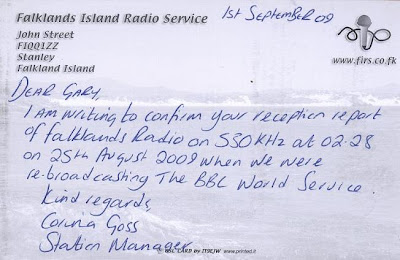 Falklands Island Radio Service
1st September 09
John Street
FIQQ1ZZ
Stanley
Falkland Island
www.firs.co.fk
Dear Gary,
I am writing to confirm your reception report
of Falklands Radio on 530KHz at 02.28
on 25th August 2009 when we were
re-broadcasting The BBC World Service.
Kind regards,
Corina Goss
Station Manager
QSL CARD by IT9EJW www.printed.it